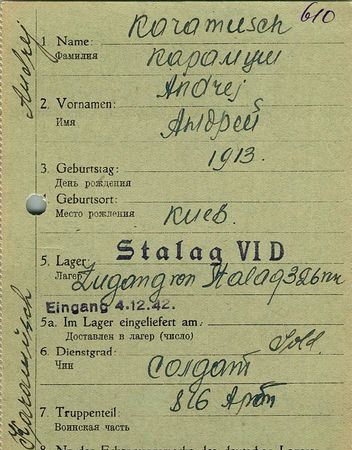 610
Karamusch
1. Name:
Фамилия
Карамуш
Andrej
2. Vornamen:
Имя
Андрей
1913.
3. Geburtstag:
День рождения
4. Geburtsort:
Место рождения
Киев.
Stalag VI D
5. Lager:
Лагерь
Zugang von Stalag 326
Eingang 4.12.42.
5a. Im Lager eingeliefert am:
Доставлен в лагерь (число)
Sold.
6. Dienstgrad:
Чин
Солдат
816 Арт
7. Truppenteil:
Воинская часть
Karamusch
Andrej